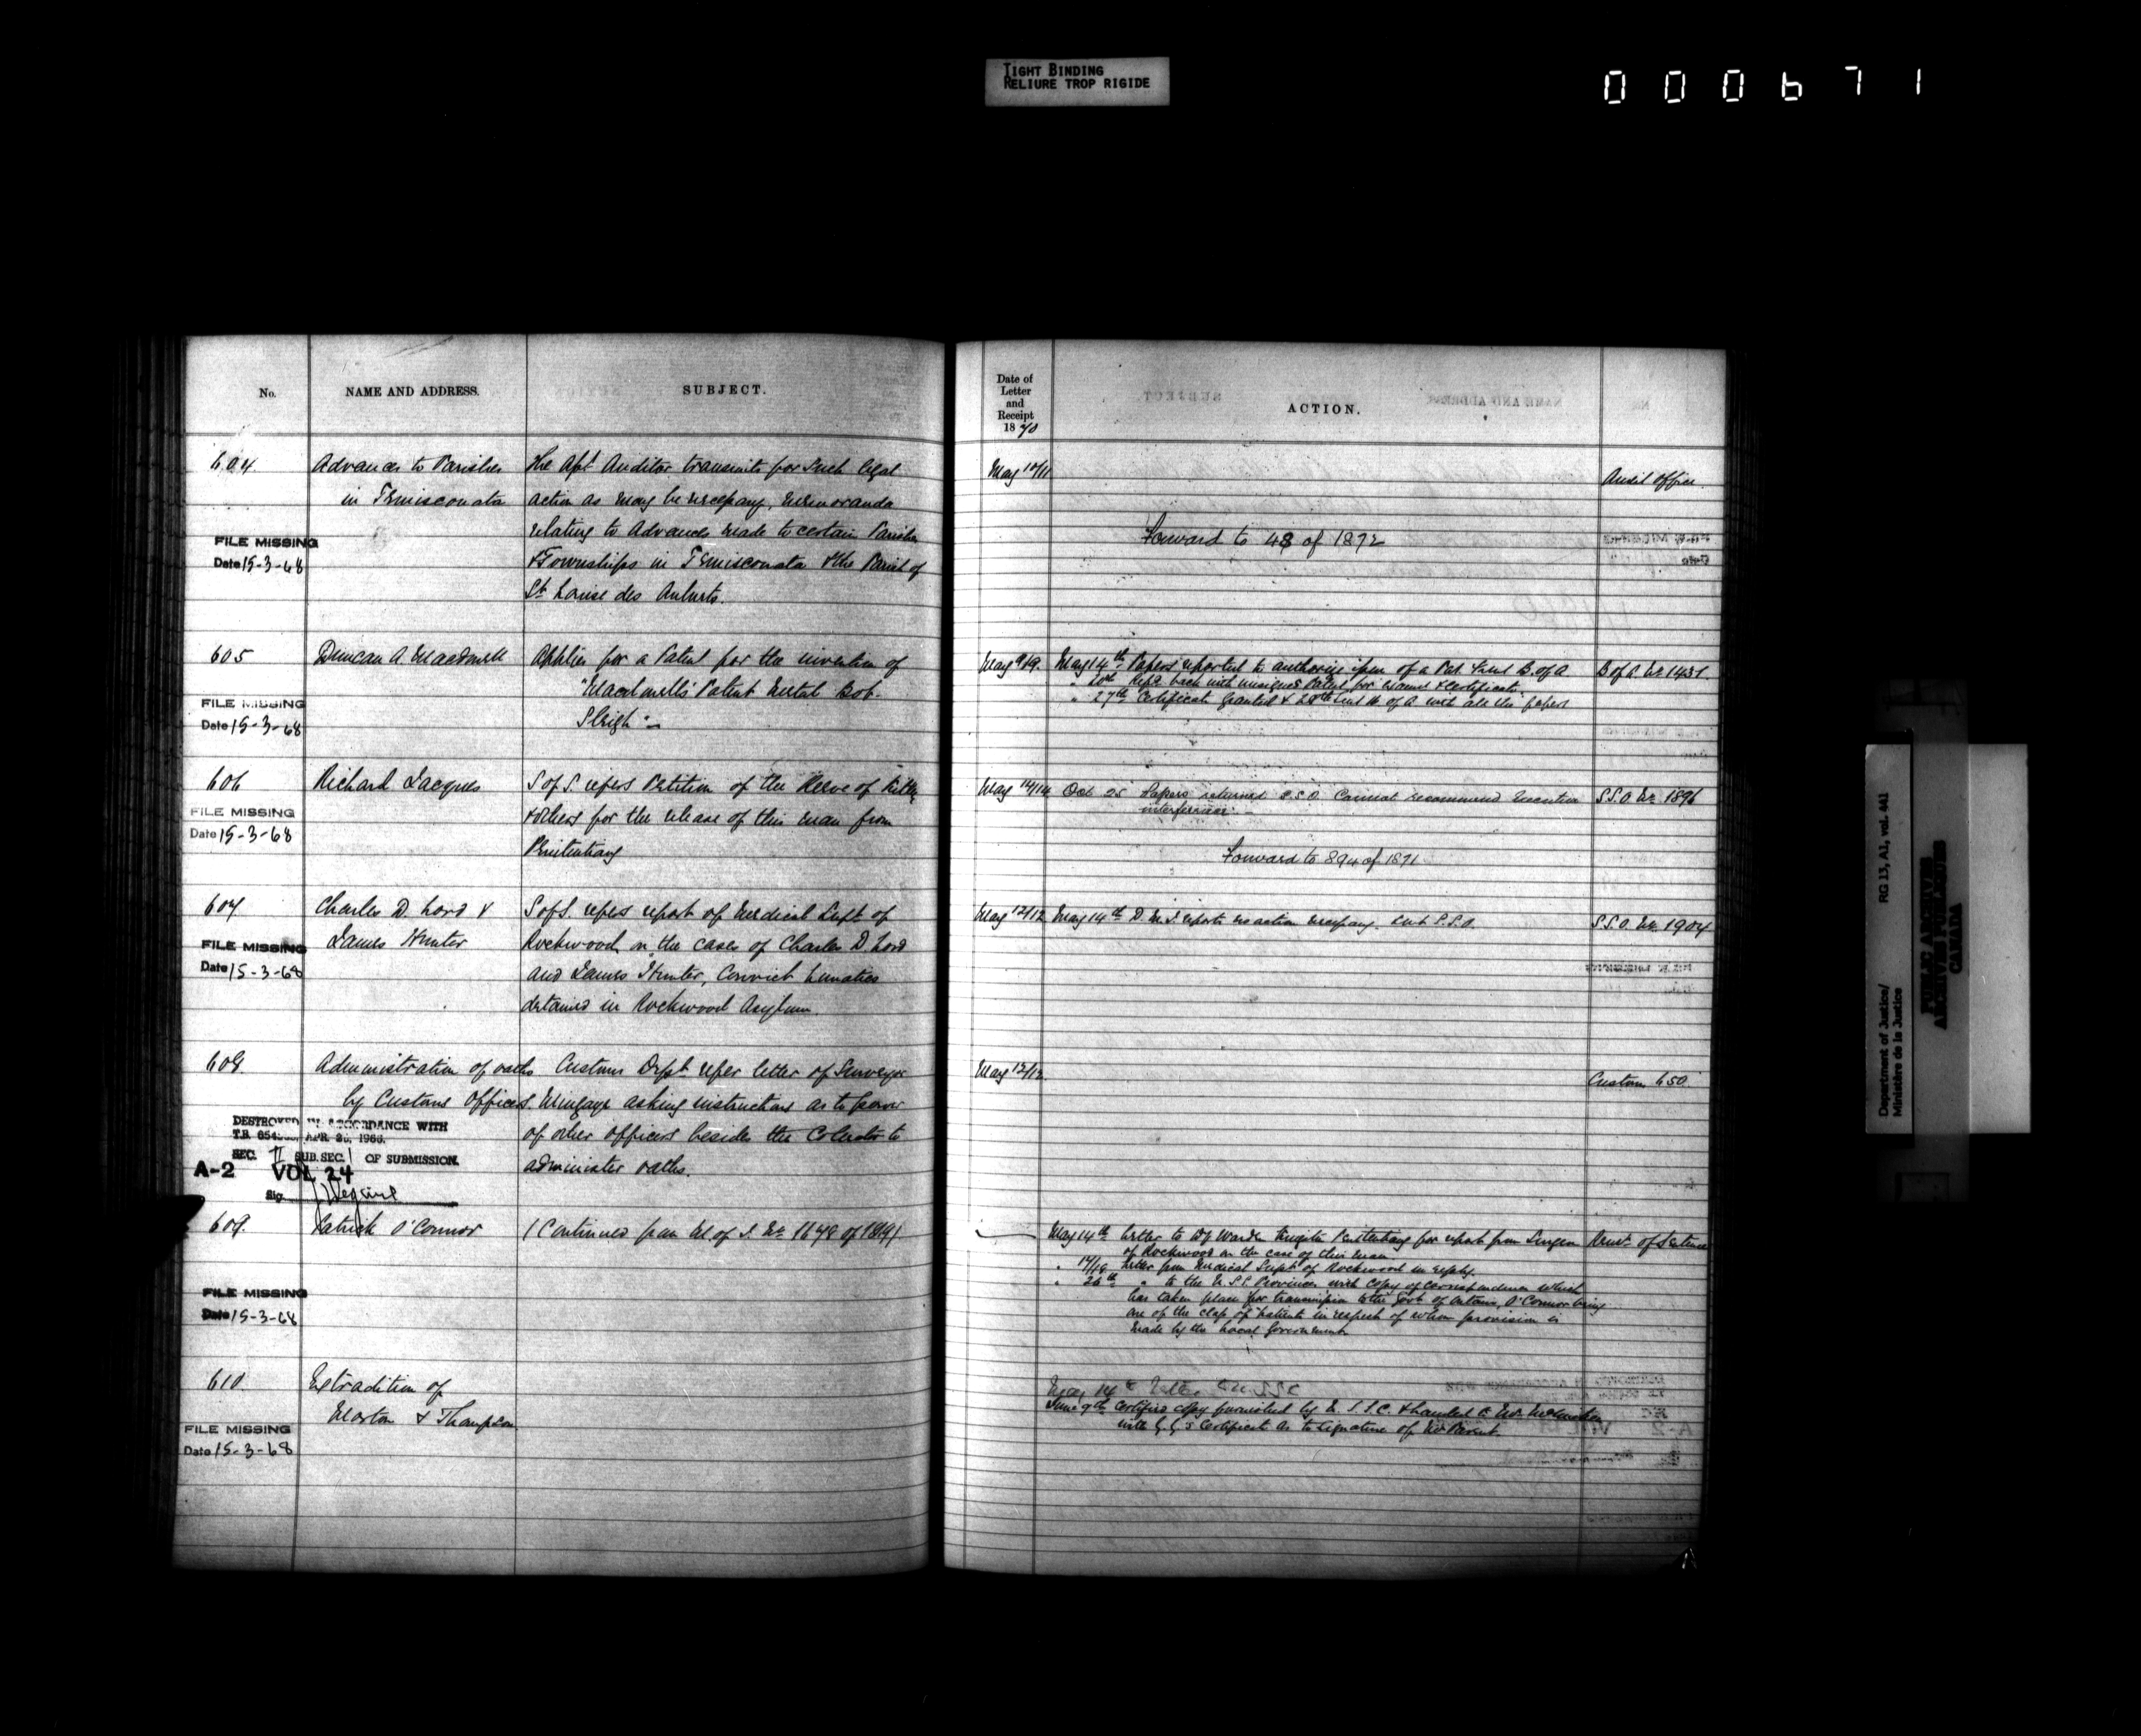 TIGHT BINDING
RELIURE TROP RIGIDE
000671
No.
NAME AND ADDRESS.
SUBJECT.
604
Advances to Parishes
in Temisconata
FILE MISSING
Date 15-3-68
The Apt Auditor transmits for such legal
action as may be necessary, memoranda
relating to Advances made to certain Parishes
& Townships in Temisconata & the Parish of
St Louise des
605
Duncan A Macdonell
FILE MISSING
Date 15-3-68
Applies for a Patent for the invention of
"Macdonell's Patent Metal Bob.
Sleigh"
606
Richard Jacques
FILE MISSING
Date 15-3-68
S of S. refers Petition of the Reeve of
& others for the release of this man from
Penitentiary
607
Charles D. Lord &
James Hunter
FILE MISSING
Date 15-3-68
S of S. refers report of Medical Supt of
Rockwood in the cases of Charles D. Lord
and James Hunter, Convict Lunatics
detained in Rockwood Asylum.
608.
Administration of oaths
by Customs Officers.
DESTROYED IN ACCORDANCE WITH
T.B. APR. 1966.
SEC. II SUB. SEC. 1 OF SUBMISSION.
A-2 VOL 24
Sig.
Customs Dept refer letter of Surveyor
asking instructions as to power
of other officers besides the Collector to
administer oaths.
609.
Patrick O'Connor
FILE MISSING
Date 15-3-68
(Continued from of J. No 1648 of 1869)
610.
Extradition of
Marton & Thompson
FILE MISSING
Date 15-3-68
Date of
Letter
and
Receipt
1870
ACTION.
May 10/11
Forward to 48 of 1872
Audit Office
May 9/19.
May 14th Papers reported to authorize issue of a Pat. Sent B. of A
" 20th back with Patent for & Certificate.
" 27th Certificate Granted & 28th sent M of A with all the papers
B of A No 1431
May 14/14
Oct 25 Papers returned S.S.O. Cannot recommend Executive
interference.
Forward to 894 of 1871
S.S.O. No 1896
May 12/12
May 14th D. M. J. reports no action necessary. Sent S.S.O.
S.S.O. No 1904
May 12/12
Custom 650
May 14th Letter to Dy Warden Kingston Penitentiary for report from Surgeon
of Rockwood in the case of this man
" 17/18 Letter from Medical Supt of Rockwood in reply.
" 26th " to the U.S.S. Provinces with copy of correspondence which
has taken place for transmission to the Govt of Ontario, O'Connor being
one of the class of patients in respect of whom provision is
made by the Local Government
of Sentence
May 14th Letter
June 9th Certified copy furnished by & handed to Mr.
with G. G's Certificate as to signature of Mr Parent.
Department of Justice/
Ministère de la Justice
RG 13, A1, vol. 441
PUBLIC ARCHIVES
ARCHIVES PUBLIQUES
CANADA